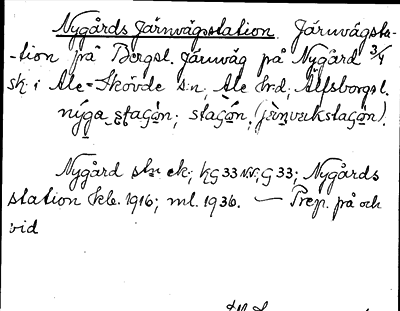 Nygårds Järnvägsstation Järnvägsta-
-tion på Bergsl. järnväg på Nygård 3/4
sk. i Ale-Skövde s:n, Ale hrd, Älfsborgs l.
nýga staʃón; staʃón, (jä̀rnverkstaʃón).
Nygård stn ek; kG 33 NV; G 33; Nygårds
station kb. 1916; ml. 1936. — Prep. på och
vid